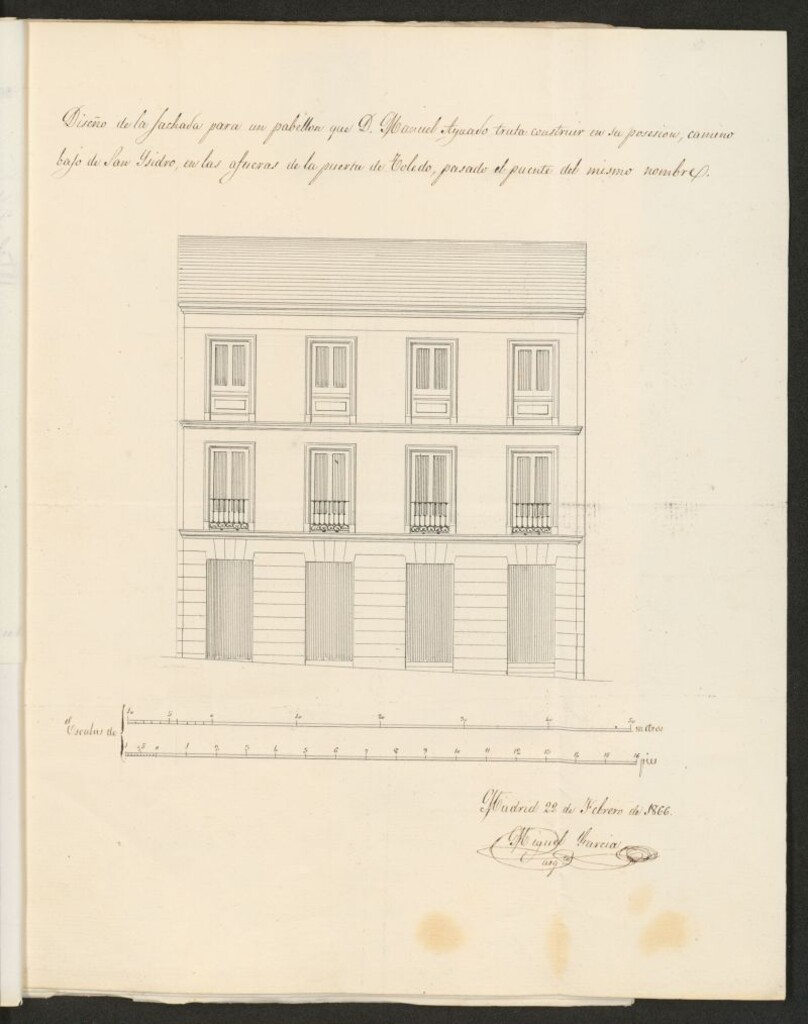 Diseño de la fachada para un pabellon que D. Manuel Aguado trata construir en su posesion, camino
bajo de San Ysidro, en las afueras de la puerta de Toledo, pasado el puente del mismo nombre.
Escalas de
10 5 0 10 20 30 40 50 metros
1 5 0 1 2 3 4 5 6 7 8 9 10 11 12 13 14 15 16 pies
Madrid 22 de Febrero de 1866.
Miguel Garcia
arqto